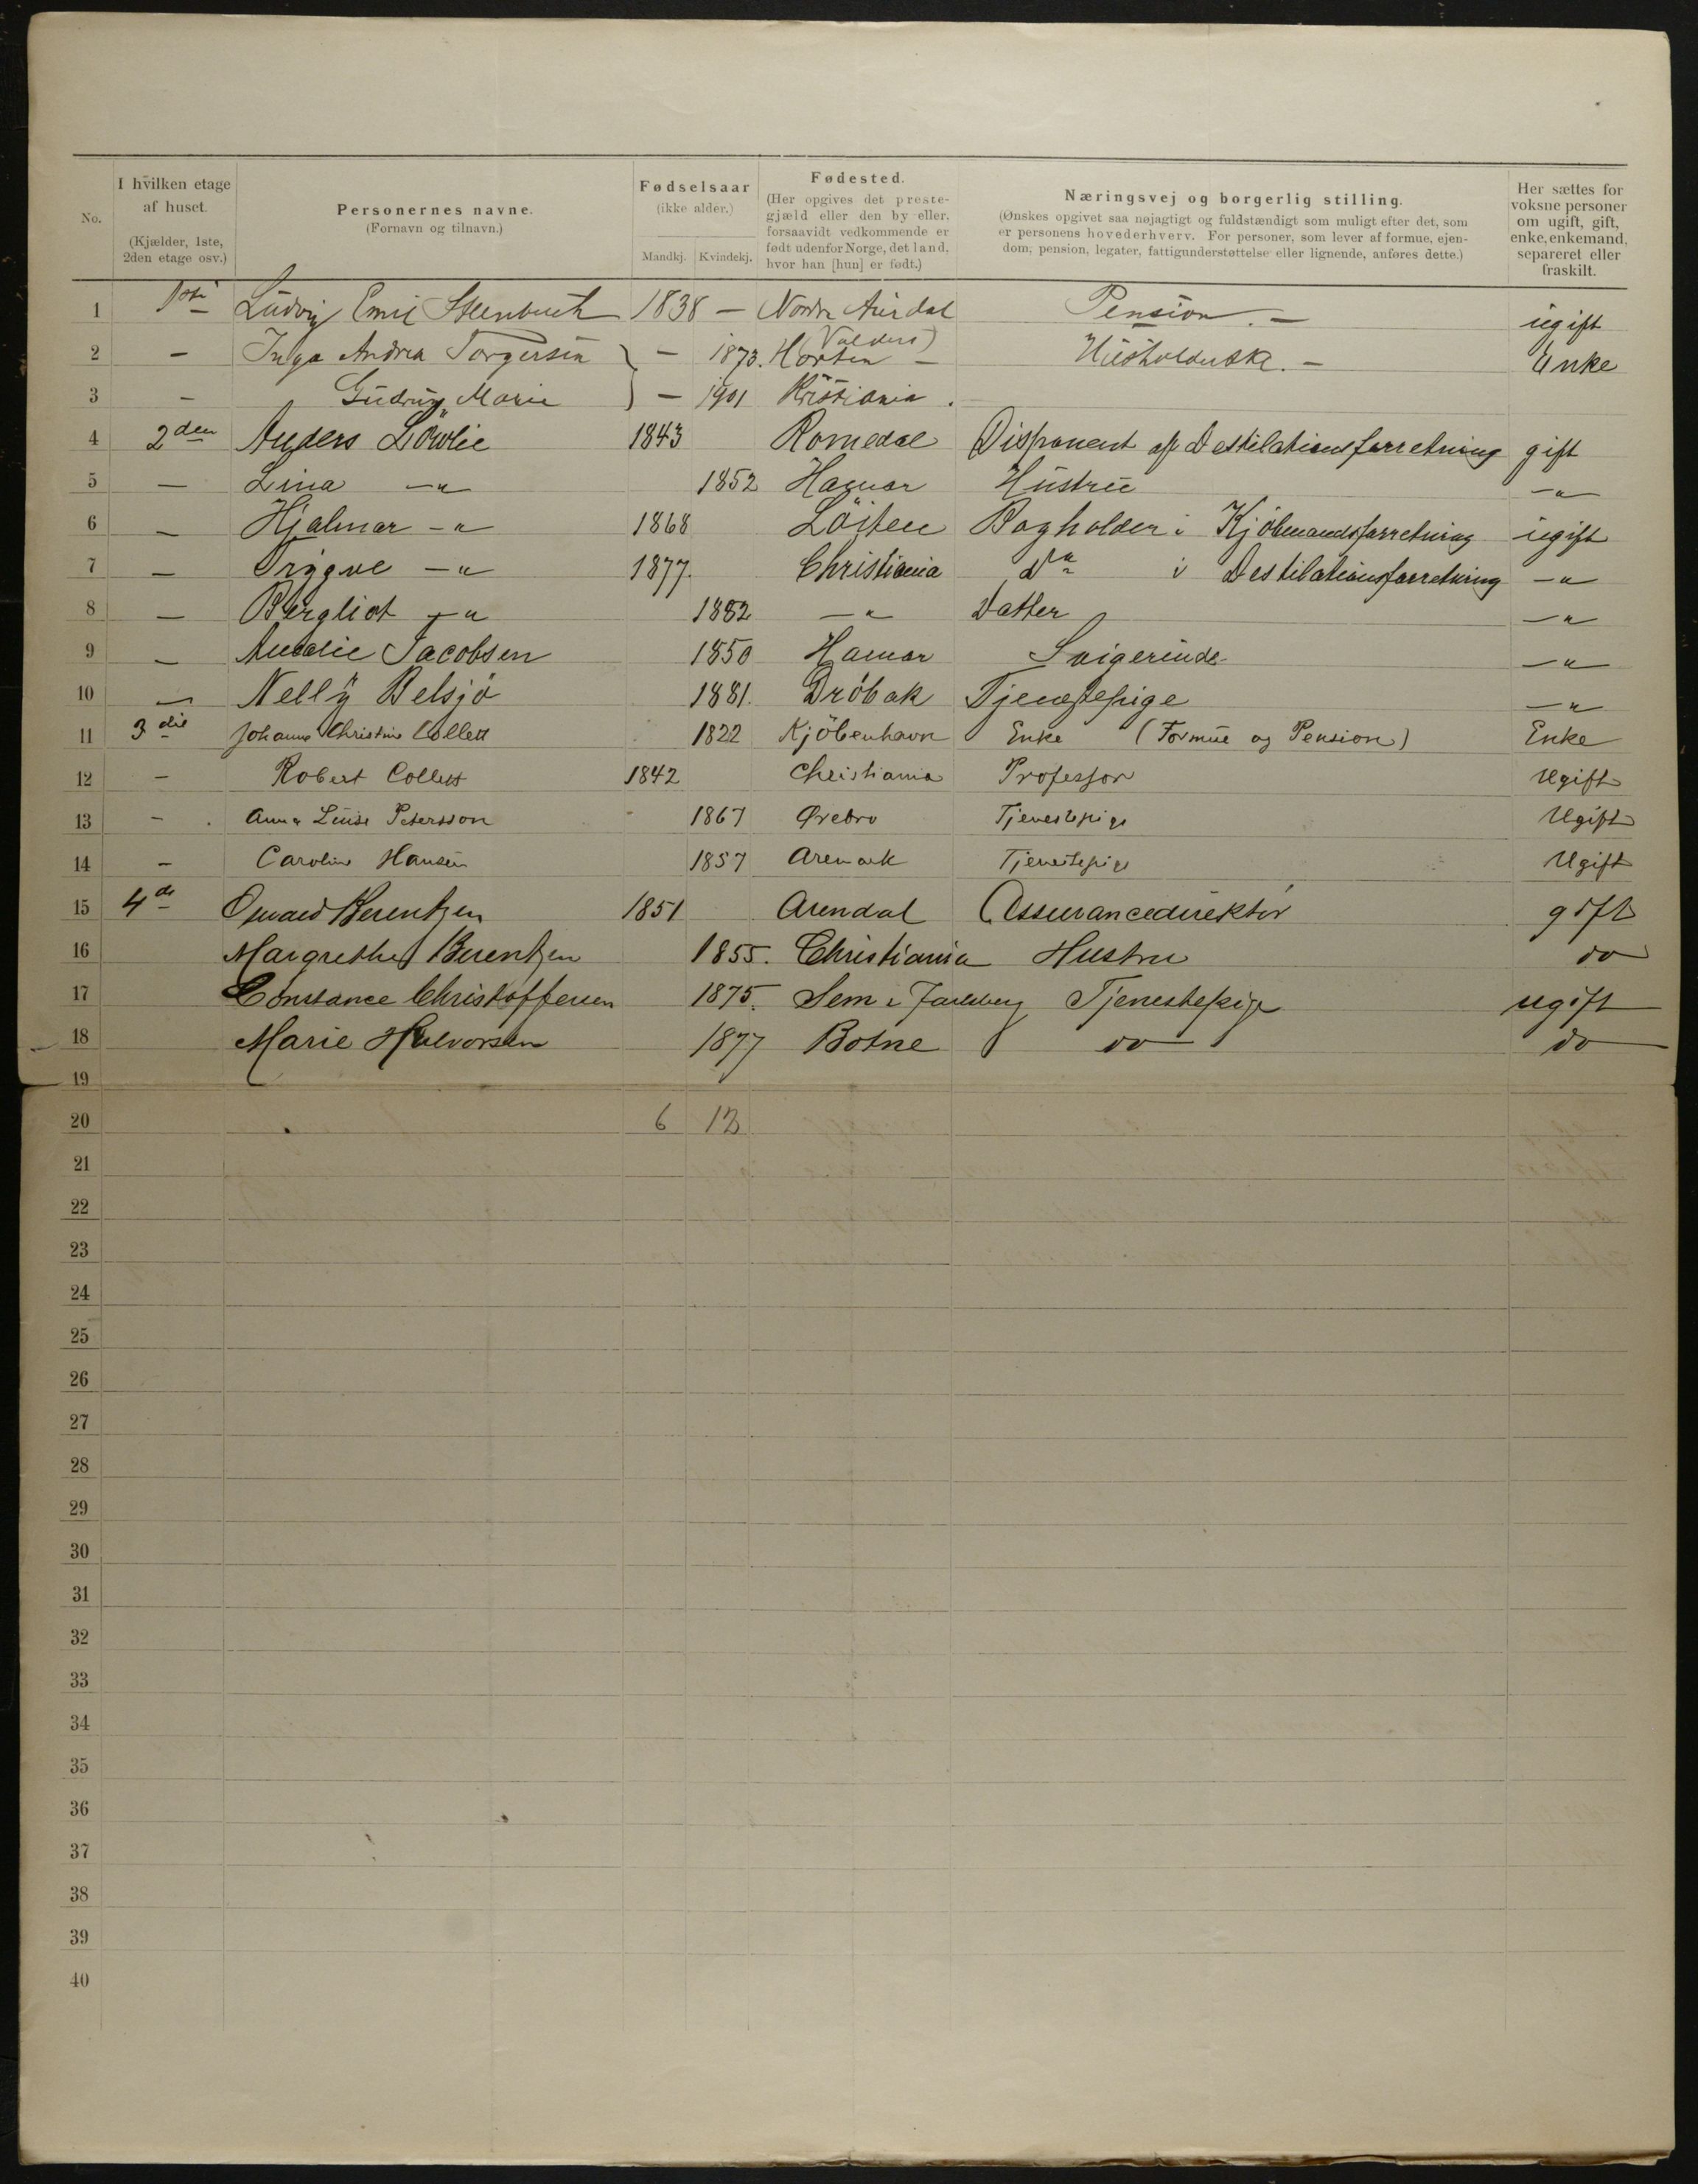 No. I hvilken etage af huset. (Kjælder, 1ste, 2den etage osv.) Personernes navne. (Fornavn og tilnavn.) Fødselsaar (ikke alder.) Mandkj. Kvindekj. Fødested. (Her opgives det prestegjæld eller den by eller, forsaavidt vedkommende er født udenfor Norge, det land, hvor han [hun] er født.) Næringsvej og borgerlig stilling. (Ønskes opgivet saa nøjagtigt og fuldstændigt som muligt efter det, som er personens hovederhverv. For personer, som lever af formue, ejendom, pension, legater, fattigunderstøttelse eller lignende, anføres dette.) Her sættes for voksne personer om ugift, gift, enke, enkemand, separeret eller fraskilt.
1 1ste Ludvig Emil Steenbuch 1838 – Nordre Aurdal Valders) Pension. – ugift
2 – Inga Andrea Torgersen } – 1873. Horten – Husholderske. – Enke
3 – Gudrun Marie } – 1901 Kristiania .
4 2den Anders Löwlie 1843 Romedal Disponent af Destilationsforretning gift
5 – Lina –"– 1852 Hamar Hustru –"–
6 – Hjalmar –"– 1868 Löiten Bogholder i Kjöbmandsforretning ugift
7 – Trygve –"– 1877. Christiania do i Destilationsforretning –"–
8 – Bergliot –"– 1882 –"– Datter –"–
9 – Amalie Jacobsen 1850 Hamar Svigerinde –"–
10 – Nelly Belsjö 1881. Dröbak Tjenestepige –"–
11 3die Johanne Christine Collett 1822 Kjöbenhavn Enke (Formue og Pension) Enke
12 – Robert Collett 1842 Christiania Professor Ugift
13 – Anna Luise Petersson 1867 Ørebro Tjenestepige Ugift
14 – Caroline Hansen 1857 Aremark Tjenestepige Ugift
15 4de Berentzen 1851 Arendal Assurancedirektör gift
16 Margrethe Berentzen 1855. Christiania Hustru do
17 Constance Christoffersen 1875. Sem i Jarlsberg Tjenestepige ugift
18 Marie Halvorsen 1877 Botne do do
19
20 6 12
21
22
23
24
25
26
27
28
29
30
31
32
33
34
35
36
37
38
39
40